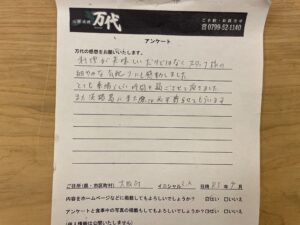 万代
ご予約・お問合せ
☎ 0799-52-1140
アンケート
万代の感想をお願いいたします。
料理が美味しいだけではなくスタッフ様の
細やかな気配りにも感動しました
とても素晴らしい時間を過ごさせて頂きました
また淡路島に来た際は
ご住所(県・市区町村) 大阪府 イニシャル 日時 年 月
内容をホームページなどに掲載してもよろしいでしょうか? □はい □いいえ
アンケートと食事中の写真の掲載もしてもよろしいでしょうか? □はい □いいえ
(個人情報は公開いたしません)